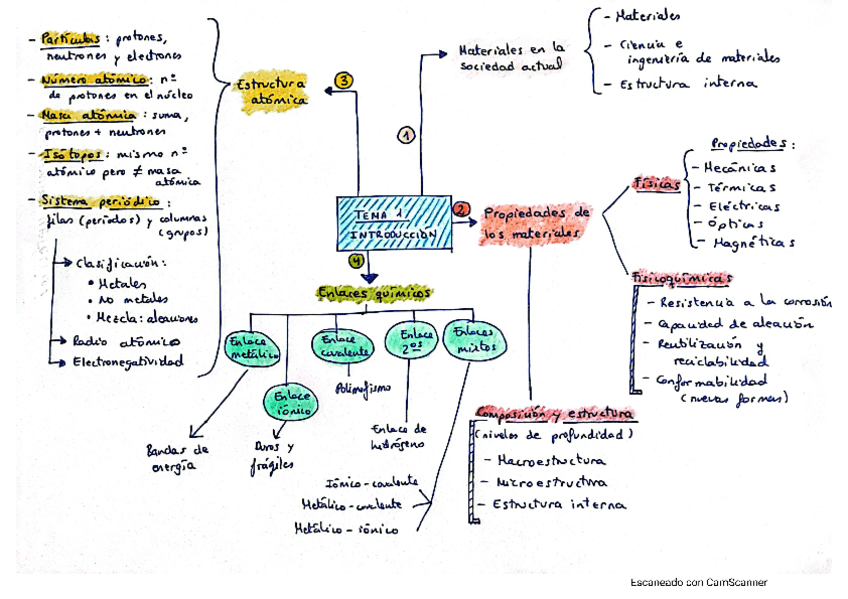 TEMA 1
INTRODUCCIÓN
1
Materiales en la
sociedad actual
- Materiales
- Ciencia e
ingeniería de materiales
- Estructura interna
2
Propiedades de
los materiales
Físicas
Propiedades:
- Mecánicas
- Térmicas
- Eléctricas
- Ópticas
- Magnéticas
Fisicoquímicas
- Resistencia a la corrosión
- Capacidad de aleación
- Reutilización y
reciclabilidad
- Conformabilidad
(nuevas formas)
Composición y estructura
(niveles de profundidad)
- Macroestructura
- Microestructura
- Estructura interna
3
Estructura
atómica
- Partículas: protones,
neutrones y electrones
- Número atómico: nº
de protones en el núcleo
- Masa atómica: suma,
protones + neutrones
- Isótopos: mismo nº
atómico pero ≠ masa
atómica
- Sistema periódico:
filas (períodos) y columnas
(grupos)
Clasificación:
• Metales
• No metales
• Mezcla: aleaciones
Radio atómico
Electronegatividad
4
Enlaces químicos
Enlace
metálico
Bandas de
energía
Enlace
iónico
Duros y
frágiles
Enlace
covalente
Polimofismo
Enlace
2ºs
Enlace de
hidrógeno
Enlaces
mixtos
Iónico-covalente
Metálico-covalente
Metálico-iónico
Escaneado con CamScanner